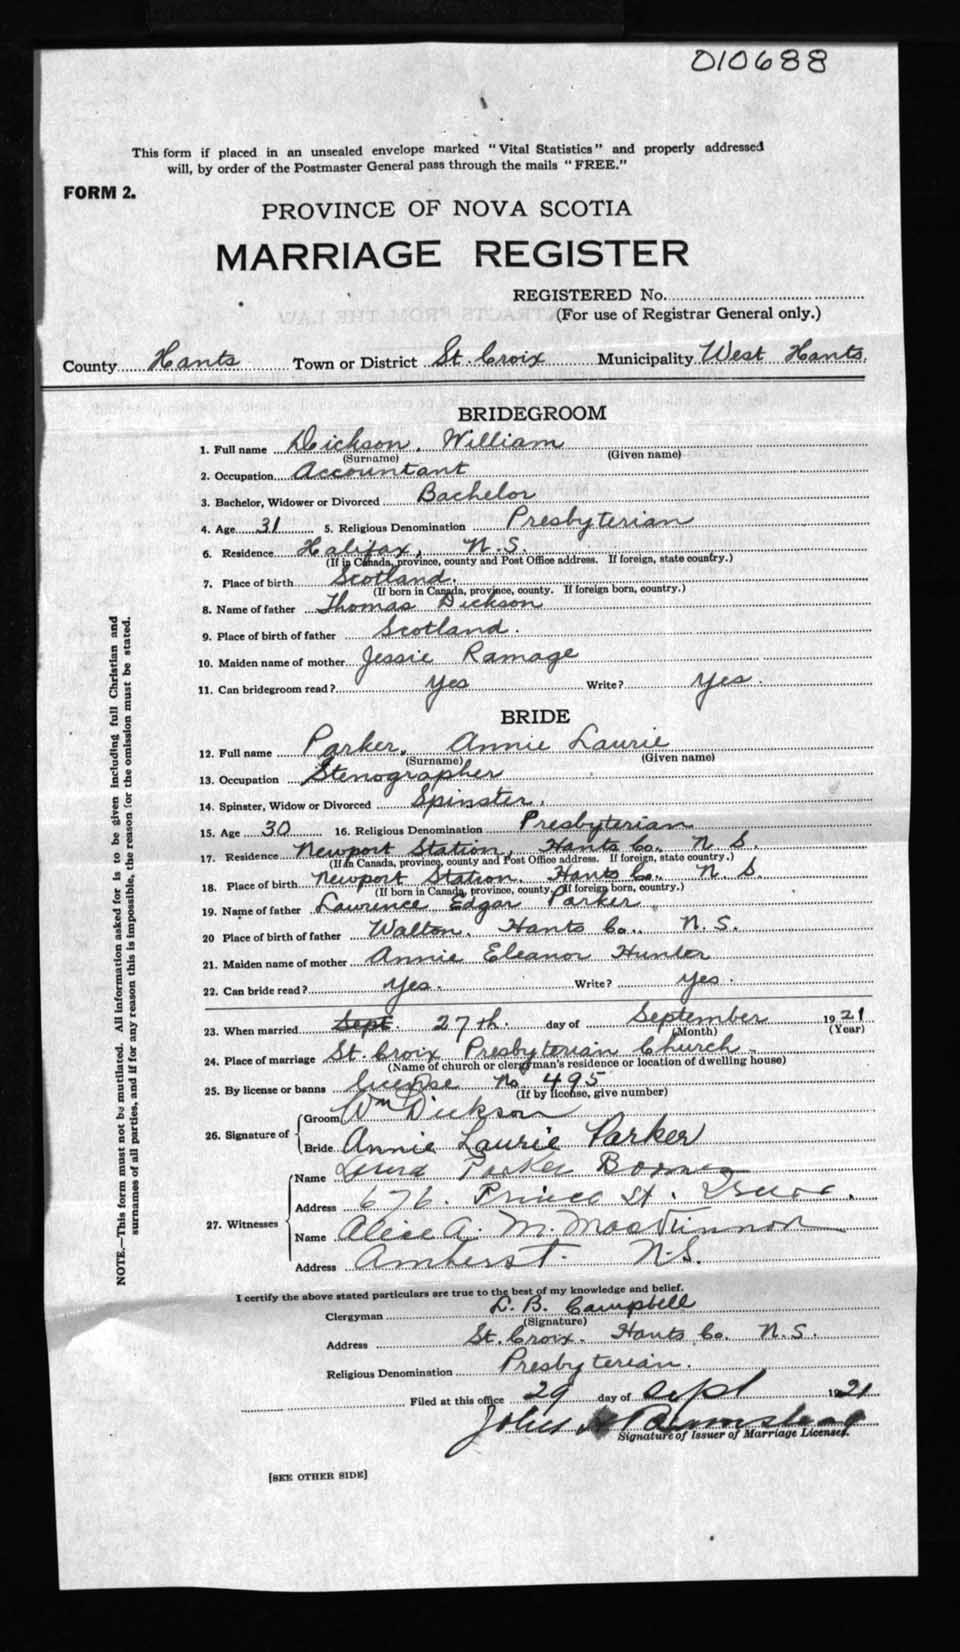 010688
This form if placed in an unsealed envelope marked "Vital Statistics" and properly addressed
will, by order of the Postmaster General pass through the mails "FREE."
FORM 2.
PROVINCE OF NOVA SCOTIA
MARRIAGE REGISTER
REGISTERED No.
(For use of Registrar General only.)
County Hants Town or District St. Croix Municipality West Hants.
BRIDEGROOM
1. Full name Dickson, William
(Surname) (Given name)
2. Occupation Accountant
3. Bachelor, Widower or Divorced Bachelor
4. Age 31 5. Religious Denomination Presbyterian
6. Residence Halifax, N.S.
(If in Canada, province, county and Post Office address. If foreign, state country.)
7. Place of birth Scotland.
(If born in Canada, province, county. If foreign born, country.)
8. Name of father Thomas Dickson
9. Place of birth of father Scotland.
10. Maiden name of mother Jessie Ramage
11. Can bridegroom read? Yes Write? Yes.
BRIDE
12. Full name Parker, Annie Laurie
(Surname) (Given name)
13. Occupation Stenographer
14. Spinster, Widow or Divorced Spinster.
15. Age 30 16. Religious Denomination Presbyterian
17. Residence Newport Station, Hants Co., N. S.
(If in Canada, province, county and Post Office address. If foreign, state country.)
18. Place of birth Newport Station. Hants Co., N. S.
(If born in Canada, province, county. If foreign born, country.)
19. Name of father Lawrence Edgar Parker
20 Place of birth of father Walton. Hants Co.. N.S.
21. Maiden name of mother Annie Eleanor Hunter
22. Can bride read? Yes. Write? Yes.
23. When married Sept. 27th. day of September 1921
(Month) (Year)
24. Place of marriage St. Croix Presbyterian Church
(Name of church or clergyman's residence or location of dwelling house)
25. By license or banns license No. 495
(If by license, give number)
26. Signature of Groom Wm Dickson
Bride Annie Laurie Parker
27. Witnesses Name Parker
Address 676. Prince St. Truro.
Name Alice A. M. MacKinnon
Address Amherst. N.S.
I certify the above stated particulars are true to the best of my knowledge and belief.
Clergyman L. B. Campbell
(Signature)
Address St. Croix. Hants Co. N.S.
Religious Denomination Presbyterian.
Filed at this office 29 day of Sept 1921
Signature of Issuer of Marriage Licenses.
[SEE OTHER SIDE]
NOTE.—This form must not be mutilated. All information asked for is to be given including full Christian and
surnames of all parties, and if for any reason this is impossible, the reason for the omission must be stated.